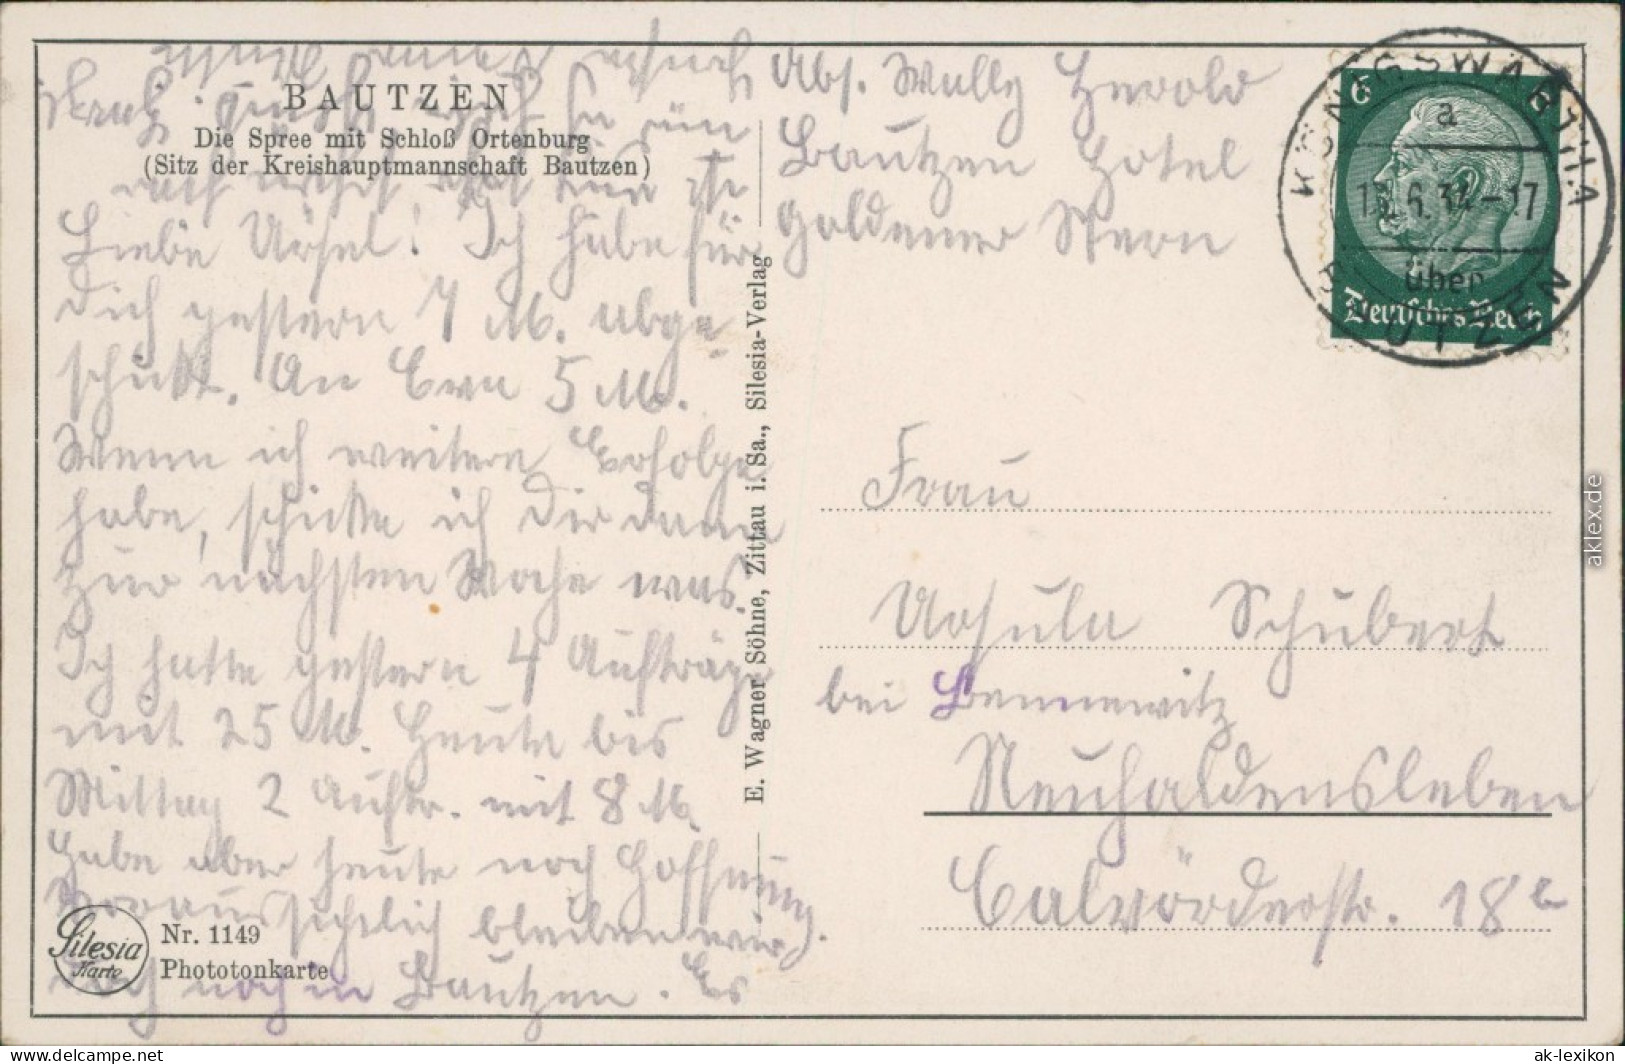 BAUTZEN
Die Spree mit Schloß Ortenburg
(Sitz der Kreishauptmannschaft Bautzen)
Liebe Ursel! Ich habe für
Dich gestern 7 M. abge-
schickt. An Erna 5 M.
Wenn ich weitere Erfolge
habe, schicke ich Dir dann
zur nächsten Woche was.
Ich hatte gestern 4 Aufträge
mit 25 M. Heute bis
Mittag 2 Auftr. mit 8 M.
Habe aber heute noch Hoffnung.
Voraussichtlich bleiben wir
noch in Bautzen. Es
Silesia
Karte
Nr. 1149
Phototonkarte
E. Wagner Söhne, Zittau i. Sa., Silesia-Verlag
Abs. Wally Herold
Bautzen Hotel
Goldener Stern
6
Deutsches Reich
KÖNIGSWARTHA
a
6.34-17
über
BAUTZEN
Frau
Ursula Schubert
bei Bennewitz
Neuhaldensleben
Calvörderstr. 18
aklex.de
www.delcampe.net
ak-lexikon